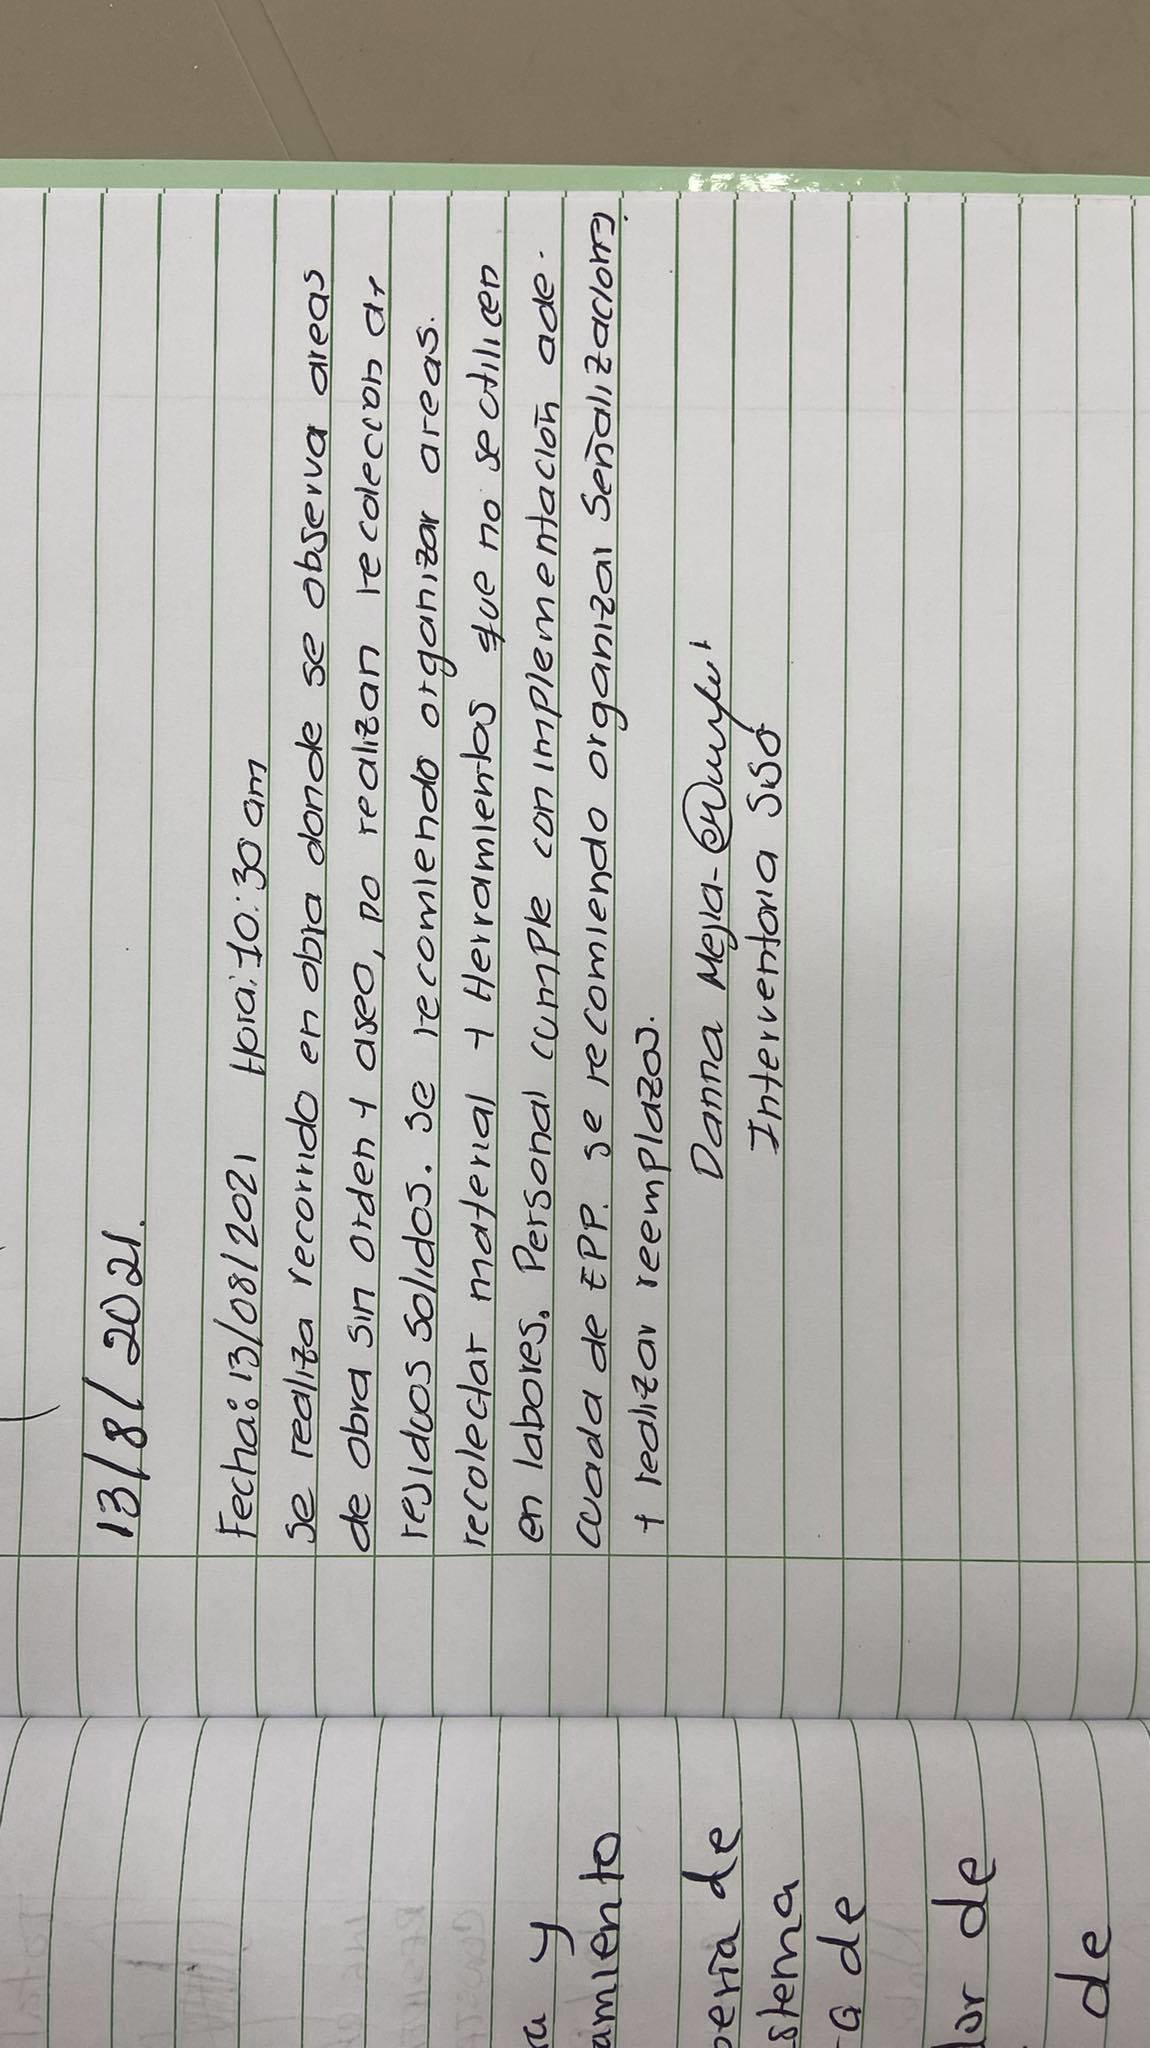 13/8/2021.
Fecha: 13/08/2021 Hora: 10:30 am
Se realiza recorrido en obra donde se observa areas
de obra sin orden y aseo, no realizan recoleccion de
residuos solidos. Se recomiendo organizar areas.
recolectar material y Herramientas que no se utilicen
en labores. Personal cumple con implementación ade-
cuada de EPP. se recomiendo organizar Señalizaciones
y realizar reemplazos.
Danna Mejia-
Interventoria SISO
a y
amiento
beria de
stema
a de
lor de
de